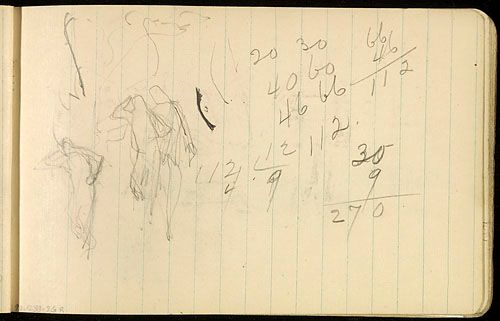 20 30 66
40 60 46
46 66 112
112
112 12 30
4 9 9
270